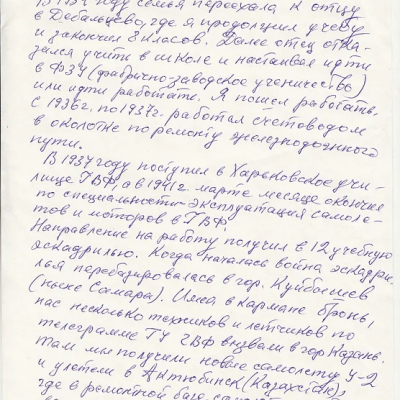 В 1934 году семья переехала к отцу
в Дебальцево, где я продолжил учебу
и закончил 8 классов. Далее отец отка-
зался учить в школе и настаивал идти
в ФЗУ (фабрично-заводское ученичество)
или идти работать. Я пошел работать.
С 1936г. по 1937г. работал счетоводом
в околотке по ремонту железнодорожного
пути.
В 1937 году поступил в Харьковское учи-
лище ГВФ, а в 1941г. марте месяце окончил
по специальности эксплуатация самоле-
тов и моторов в ГВФ.
Направление на работу получил в 12 учебную
эскадрилью. Когда началась война эскадри-
лья перебазировалась в гор. Куйбышев
(ныне Самара). Имея в кармане бронь,
нас несколько техников и летчиков по
телеграмме ГУ ГВФ вызвали в гор Казань.
Там мы получили новые самолеты У-2
и улетели в Актюбинск (Казахстан),
где в ремонтной базе